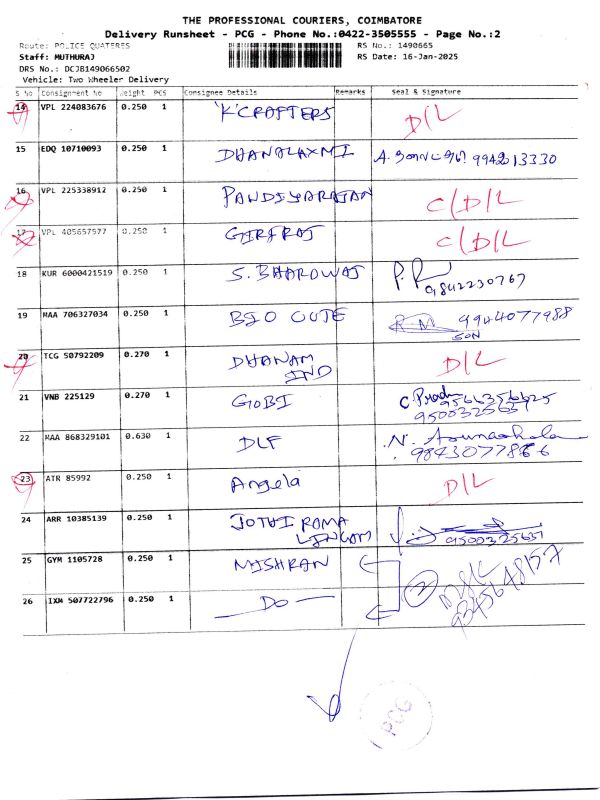 THE PROFESSIONAL COURIERS, COIMBATORE
Delivery Runsheet - PCG - Phone No.:0422-3505555 - Page No.:2
Route: POLICE QUATERES RS No.: 1490665
Staff: MUTHURAJ RS Date: 16-Jan-2025
DRS No.: DCJB149066502
Vehicle: Two Wheeler Delivery
S No Consignment No Weight PCS Consignee Details Remarks Seal & Signature
14 VPL 224083676 0.250 1 'K' CRAFTERS D/L
15 EDQ 10710093 0.250 1 DHANALAXMI A. 9942213330
16 VPL 225338912 0.250 1 PANDIYARAJAN C/D/L
17 VPL 405657577 0.250 1 GIRIRAJ C/D/L
18 KUR 6000421519 0.250 1 S. BHARDWAJ 9842230767
19 MAA 706327034 0.250 1 BIO CUTE R.M 9944077988
SON
20 TCG 50792209 0.270 1 DHANAM D/L
IND
21 VNB 225129 0.270 1 GOBI C.
9500325651
22 MAA 868329101 0.630 1 DLF N. Arunachala
23 ATR 85992 0.250 1 Angela D/L
24 ARR 10385139 0.250 1 JOTHI RAMA
LINGAM 9500325651
25 GYM 1105728 0.250 1 MISHRAN
26 IXM 507722796 0.250 1 DO 2 9345648157
PCG